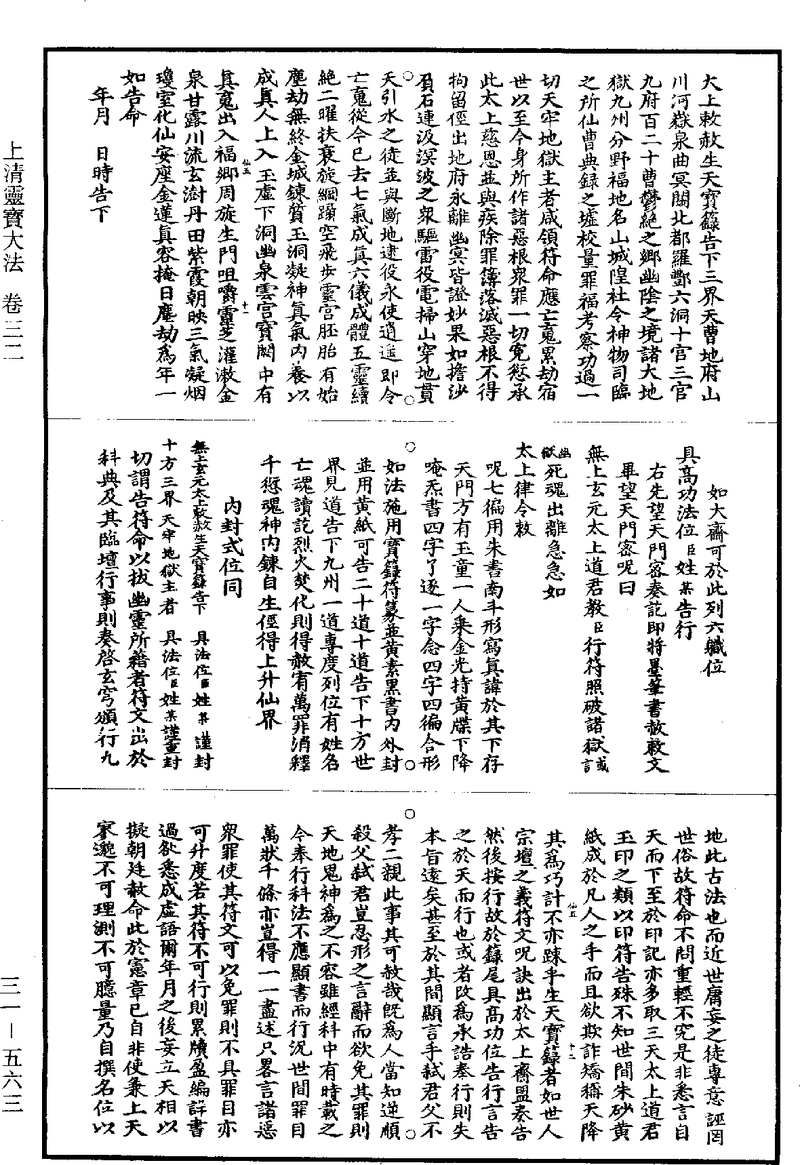 上清靈寶大法　卷三二
三一－五六三
太上敕赦生天寶籙告下三界天曹地府山
川河嶽泉曲冥關北都羅酆六洞十宫三官
九府百二十曹鬱絶之鄉幽陰之境諸大地
獄九州分野福地名山城隍社令神物司臨
之所仙曹典録之墟校量罪福考察功過一
切天牢地獄主者咸領符命應亡寃累劫宿
世以至今身所作諸惡根衆罪一切寃愆承
此太上慈恩並與疾除罪簿落滅惡根不得
拘留徑出地府永離幽冥皆證妙果如擔沙
負石連汲溟波之衆驅雷役電掃山穿地貫
天引水之徒並與斷地逮役永使逍遥即令
亡寃從今已去七氣成真六儀成體五靈續
絶二曜扶衰旋綱躡空飛步靈宫胚胎有始
塵劫無終金城鍊質玉洞凝神真氣内養以
成真人上入玉虚下洞幽泉雲宫寶闕中有
真寃出入福鄉周旋生門咀嚼靈芝灌漱金
泉甘露川流玄澍丹田紫霞朝映三氣凝烟
瓊室化仙安座金蓮真容掩日塵劫爲年一
如告命
年月　日時告下
如大齋可於此列六軄位
具高功法位臣姓某告行
右先望天門密奏訖即將墨筆書赦敕文
畢望天門密呪曰
無上玄元太上道君敎臣行符照破諸獄
幽獄死魂出離急急如
太上律令敕
呪七徧用朱書南斗形寫真諱於其下存
天門方有玉童一人乘金光持黄牒下降
唵炁書四字了逐一字念四字四徧合形
如法施用寶籙符篆並黄素黑書内外封
並用黄紙可告二十道十道告下十方世
界見道告下九州一道專度列位有姓名
亡魂讀訖烈火焚化則得赦宥萬罪消釋
千愆魂神内鍊自生徑得上升仙界
内封式位同
無上玄元太上敕赦生天寶籙告下　具法位臣姓某　謹封
十方三界天牢地獄主者　具法位臣姓某謹重封
切謂告符命以拔幽靈所藉者符文出於
科典及其臨壇行事則奏啓玄穹頒行九
地此古法也而近世庸妄之徒專意誣罔
世俗故符命不問重輕不究是非悉言自
天而下至於印記亦多取三天太上道君
玉印之類以印符告殊不知世間朱砂黄
紙成於凡人之手而且欲欺詐矯稱天降
其爲巧計不亦踈乎生天寶籙者如世人
宗壇之義符文呪訣出於太上齋盟奏告
然後按行故於籙尾具高功位告行言告
之於天而行也或者改爲承誥奉行則失
本旨遠矣甚至於其間顯言手弑君父不
孝二親此事其可赦哉既爲人當知逆順
殺父弑君豈忍形之言辭而欲免其罪則
天地鬼神爲之不容雖經科中有時載之
今奉行科法不應顯書而行況世間罪目
萬狀千條亦豈得一一盡述只畧言諸惡
衆罪使其符文可以免罪則不具罪目亦
可升度若其符不可行則累牘盈編詳書
過欲悉成虚語爾年月之後妄立天相以
擬朝廷赦命此於憲章已自非使兼上天
寥邈不可理測不可臆量乃自撰名位以